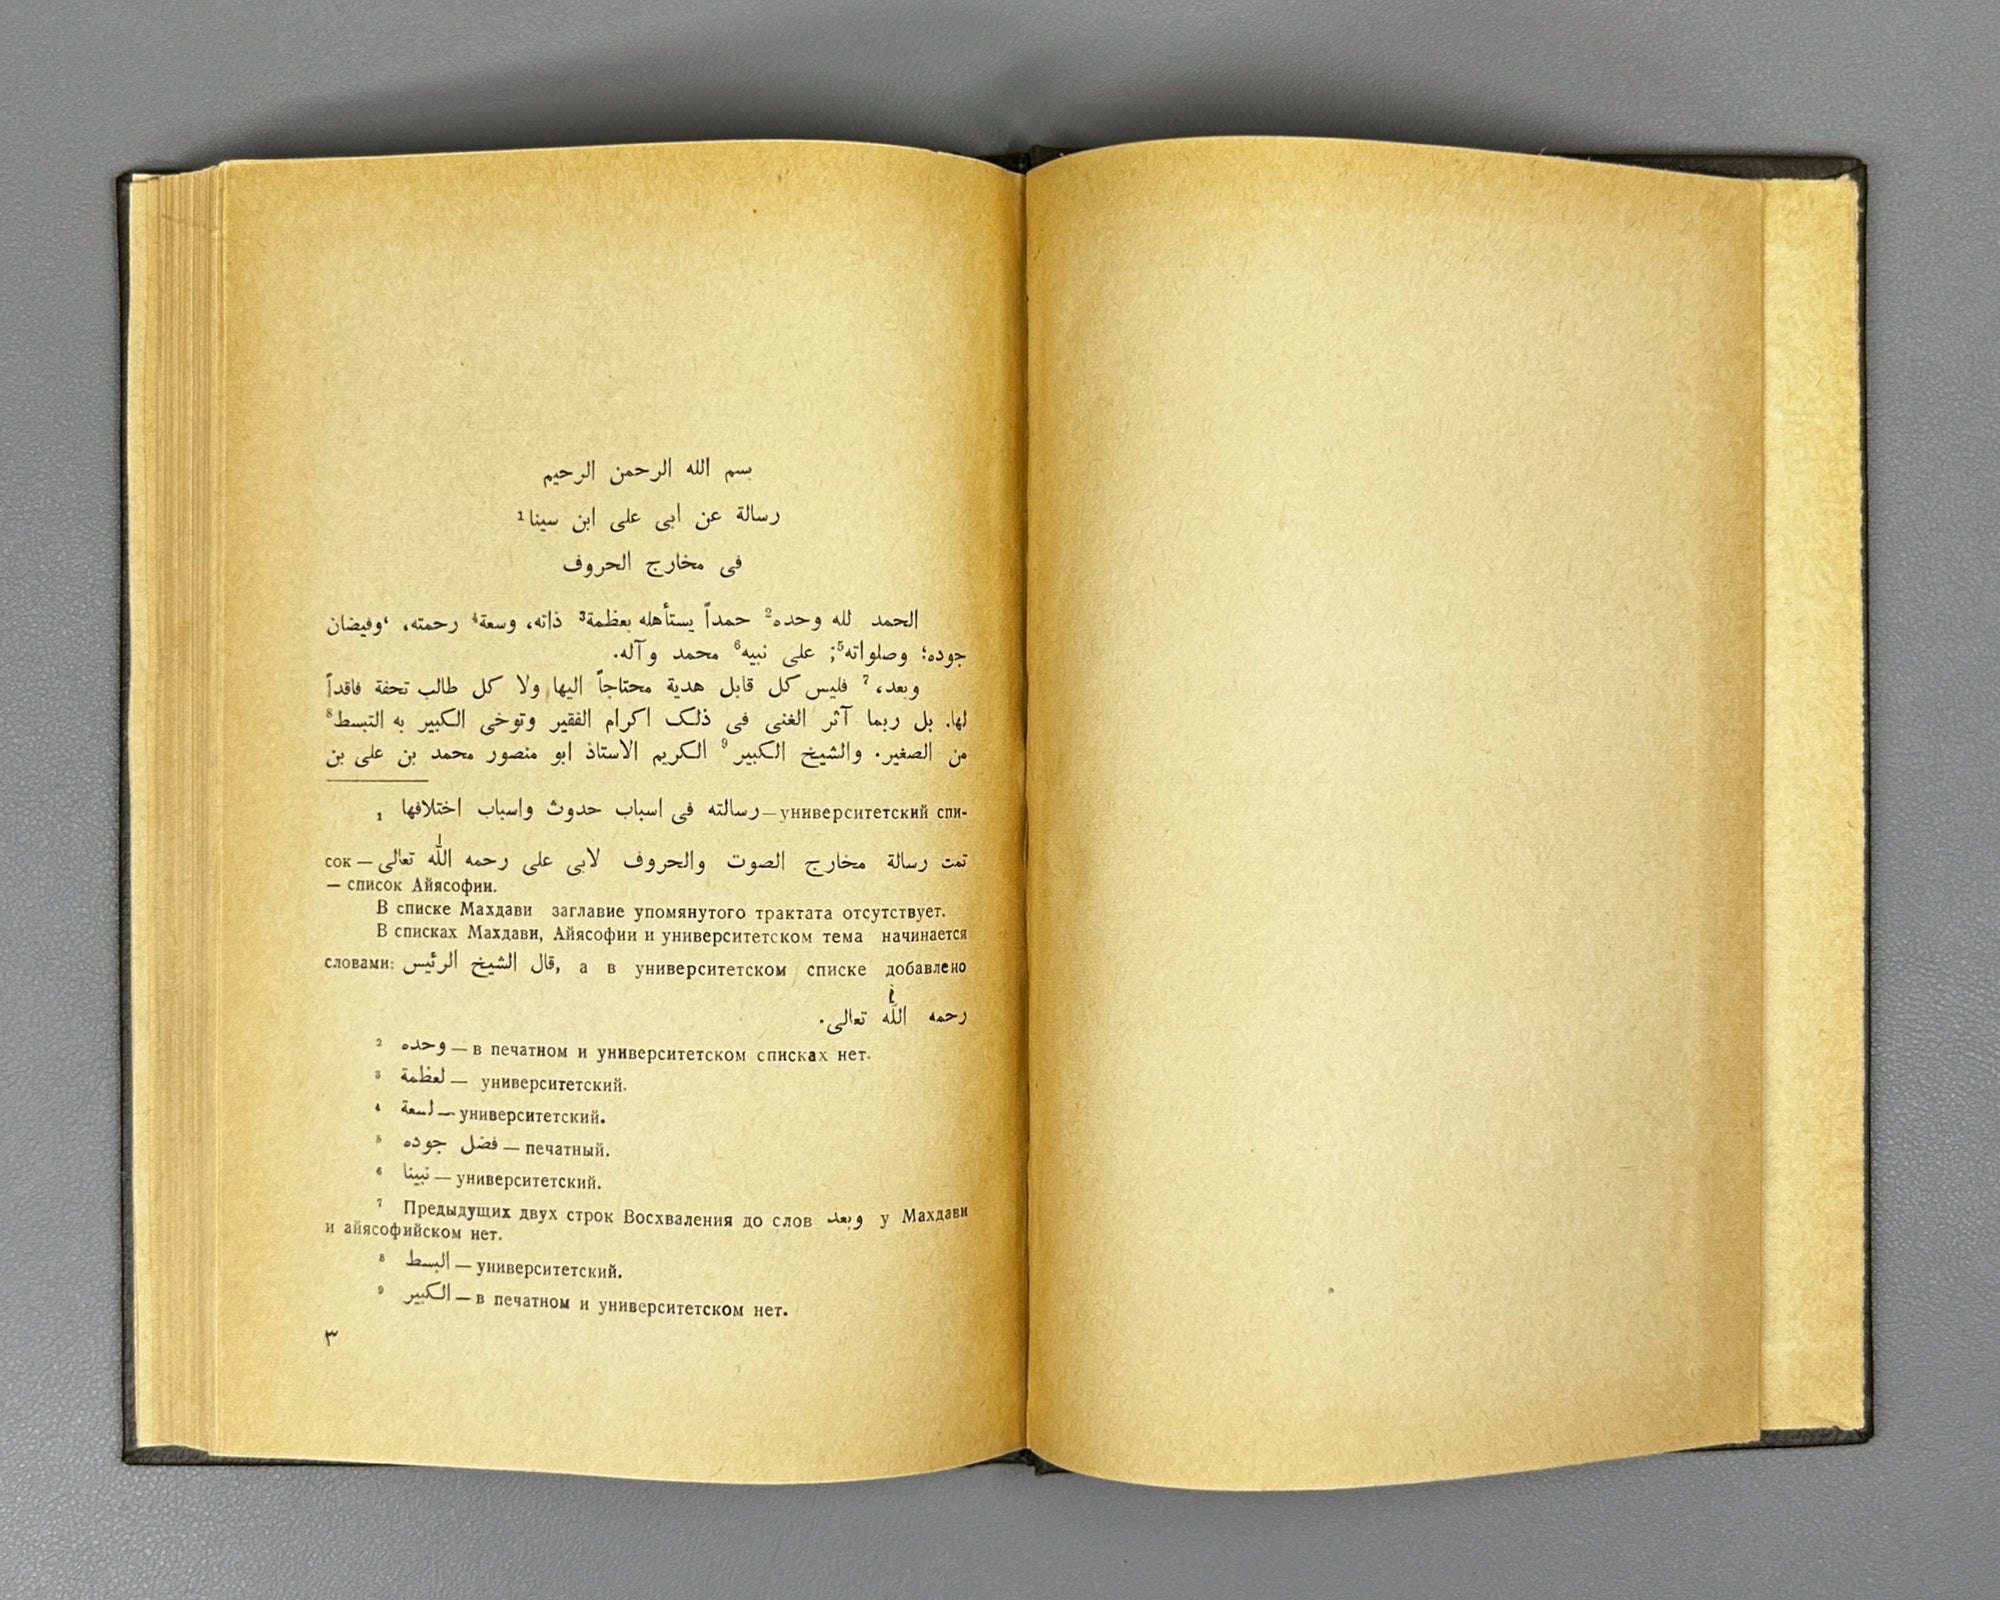 بسم الله الرحمن الرحيم
رسالة عن أبى على ابن سينا¹
فى مخارج الحروف
الحمد لله وحده² حمداً يستأهله بعظمة³ ذاته، وسعة⁴ رحمته، وفيضان
جوده؛ وصلواته⁵; على نبيه⁶ محمد وآله.
وبعد،⁷ فليس كل قابل هدية محتاجاً اليها ولا كل طالب تحفة فاقداً
لها. بل ربما آثر الغنى فى ذلك اكرام الفقير وتوخى الكبير به التبسط⁸
من الصغير. والشيخ الكبير⁹ الكريم الاستاذ ابو منصور محمد بن على بن
¹ رسالته فى اسباب حدوث واسباب اختلافها — университетский спи-
сок — تمت رسالة مخارج الصوت والحروف لابى على رحمه الله تعالى
— список Айясофии.
В списке Махдави заглавие упомянутого трактата отсутствует.
В списках Махдави, Айясофии и университетском тема начинается
словами: قال الشيخ الرئيس, а в университетском списке добавлено
رحمه الله تعالى.
² وحده — в печатном и университетском списках нет.
³ لعظمة — университетский.
⁴ لسعة — университетский.
⁵ فضل جوده — печатный.
⁶ نبينا — университетский.
⁷ Предыдущих двух строк Восхваления до слов وبعد у Махдави
и айясофийском нет.
⁸ البسط — университетский.
⁹ الكبير — в печатном и университетском нет.
٣